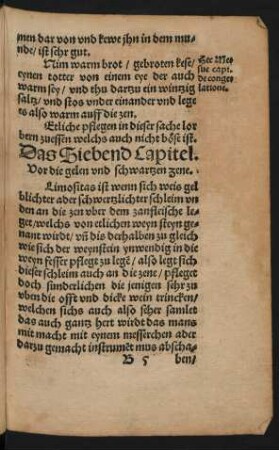 men dar von vnd kewe jhn in dem mu-
nde/ ist sehr gut.
Nim warm brot / gebroten kese/
eynen totter von einem eye der auch
warm sey / vnd thu dartzu ein wintzig
saltz/ vnd stos vnder einander vnd lege
es also warm auff die zen.
Hec Me-
sue capi.
de conge-
latione.
Etliche pflegen in dieser sache lor
bern zuessen welchs auch nicht böst ist.
Das Siebend Capitel.
Vor die gelen vnd schwartzen zene.
Limositas ist wenn sich weis gel
blichter ader schwertzlichter schleim vn
den an die zen vber dem zanfleische le-
get/welchs von etlichen weyn steyn ge-
nant wirdt/ vñ dis derhalben zu gleich
wie sich der weynstein ynwendig in die
weyn fesser pflegt zu legē/ also legt sich
dieser schleim auch an die zene/ pfleget
doch sunderlichen die jenigen sehr zu
vben die offt vnd dicke wein trincken/
welchen sichs auch also seher samlet
das auch gantz hert wirdt das mans
mit macht mit eynem messerchen ader
darzu gemacht instrumēt mus abscha-
B 5 ben/